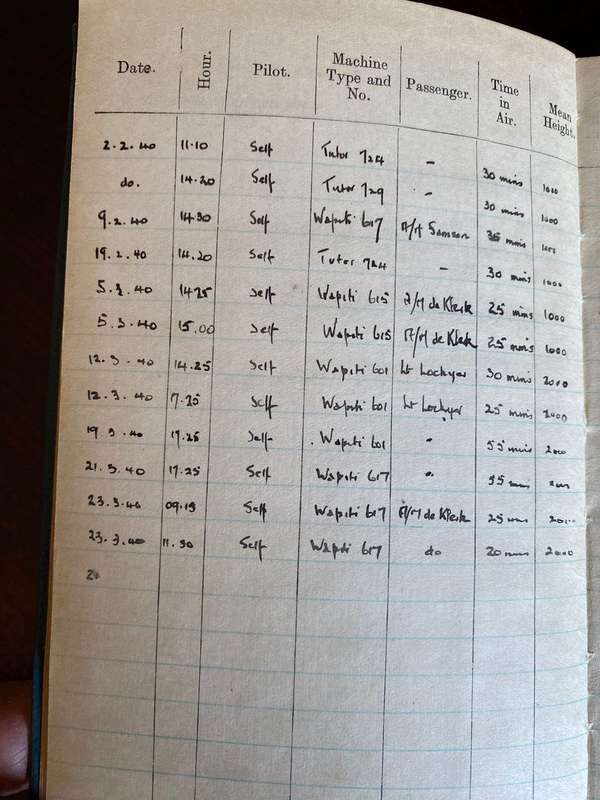 Date. Hour. Pilot. Machine Type and No. Passenger. Time in Air. Mean Height.
2.2.40 11.10 Self Tutor 724 – 30 mins 1000
do. 14.20 Self Tutor 729 – 30 mins 1000
9.2.40 14.30 Self Wapiti 617 A/M Samson 35 mins 1000
19.2.40 14.20 Self Tutor 724 – 30 mins 1000
5.3.40 14.25 Self Wapiti 615 A/M de Klerk 25 mins 1000
5.3.40 15.00 Self Wapiti 615 A/M de Klerk 25 mins 1000
12.3.40 14.25 Self Wapiti 601 Lt Lockyer 30 mins 2000
12.3.40 17.25 Self Wapiti 601 Lt Lockyer 25 mins 2000
19.3.40 17.25 Self Wapiti 601 " 55 mins 2000
21.3.40 17.25 Self Wapiti 617 " 55 mins
23.3.40 09.15 Self Wapiti 617 A/M de Klerk 25 mins 2000
23.3.40 11.30 Self Wapiti 617 do 20 mins 2000